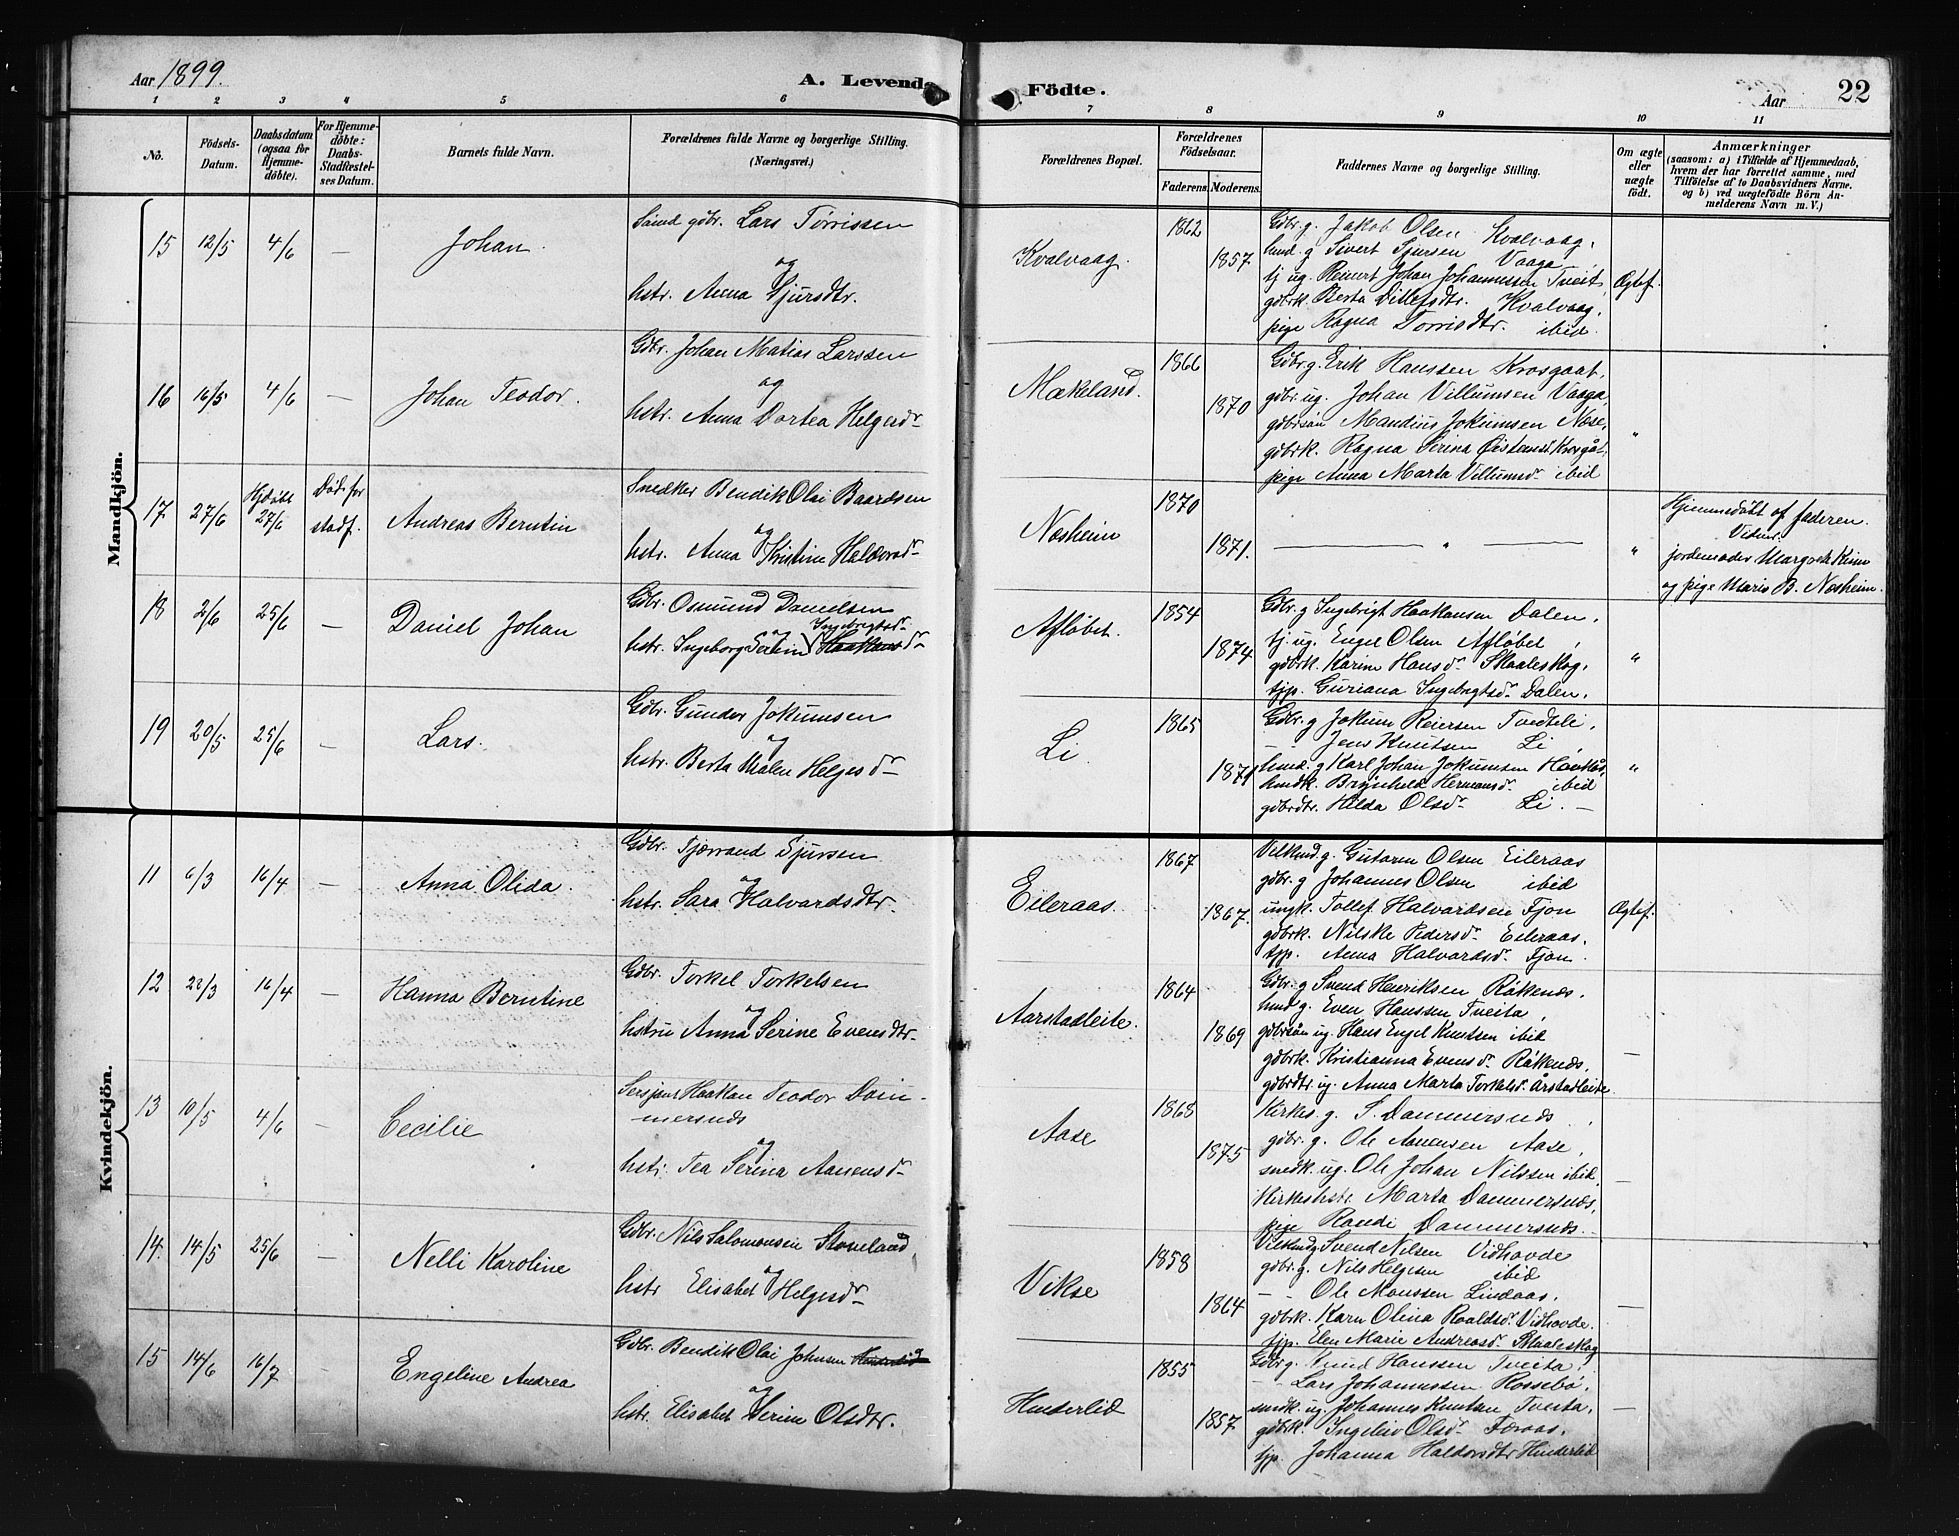 Aar 1899.
A. Levende Födte.
Aar
22
1 2 3 4 5 6 7 8 9 10 11
No.
Födsels-Datum.
Daabsdatum (ogsaa for Hjemme-döbte).
For Hjemme-döbte: Daabs-Stadfæstel-ses Datum.
Barnets fulde Navn.
Forældrenes fulde Navne og borgerlige Stilling.
(Næringsvei.)
Forældrenes Bopæl.
Forældrenes Födselsaar.
Faderens.
Moderens.
Faddernes Navne og borgerlige Stilling.
Om ægte eller uægte födt.
Anmærkninger
(saasom: a) i Tilfælde af Hjemmedaab,
hvem der har forrettet samme, med
Tilföielse af to Daabsvidners Navne.
og b) ved uægtefödte Börn An-
melderens Navn m. V.)
Mandkjön.
15 12/5 4/6 — Johan.
Sömd gdbr. Lars Tørrissen
og
hstr. Anna Sjursdtr.
Kvalvaag.
1862
1857
Gdbr. g. Jakob Olsen Kvalvaag,
hmd. g Sivert Sjursen Vaaga,
tj ug. Reinert Johan Johannessen Tveit,
gdbrk. Berta Ditlefsdtr. Kvalvaag,
pige Ragna Torrisdtr. ibid.
Ægtef.
16 16/5 4/6 — Johan Teodor.
Gdbr. Johan Matias Larssen
og
hstr. Anna Dortea Helgesdr
Mækeland.
1866
1870
Gdbr g. Erik Hanssen Krosgaat,
gdbr. ug. Johan Villumsen Vaaga,
gdbrsøn Mandius Jokumsen Næse,
gdbrk. Ragna Serina Østensd. Krosgåt,
pige Anna Marta Villumsdr ibid
"
17 27/6 Hjdøbt 27/6 Død før stadf. Andreas Berntin
Snedker Bendik Olai Baardsen
og
hstr. Anna Kristine Haldorsdr
Næsheim
1870
1871.
— " —
"
Hjemmedøbt af faderen.
Vidner:
jordemoder Margrete Keim
og pige Maris B. Nesheim.
18 2/6 25/6 — Daniel Johan
Gdbr. Osmund Danielsen
og Ingebrigtsdr
hstr. Ingeborg Serine Haakansdr
Afløbet.
1854
1874
Gdbr. g Ingebrigt Haakansen Dalen,
tj. ug. Engel Olsen Afløbet,
gdbrk. Karine Hansdr Skaaleskog,
tjp. Guriana Ingebrigtsdr Dalen.
"
19 20/5 25/6 — Lars.
Gdbr. Gunder Jokumsen
og
hstr. Berta Malene Helgesdr
Li.
1865
1871
Gdbr. g Jokum Reiersen Tvedteli,
— - Jens Knutsen Li,
hmd. g Karl Johan Jokumsen
hmdk. Brynhild Hermansdr ibid
gdbrdtr. Hilda Olsdr Li. —
"
Kvindekjön.
11 6/3 16/4 — Anna Olida.
Gdbr. Tjerrand Sjursen
og
hstr. Sara Halvardsdtr.
Eileraas.
1867
1867.
Vilkmd. g. Gustaven Olsen Eileraas
gdbr. g Johannes Olsen ibid
ungk. Tollef Halvardsen Fjon
gdbrk. Nilske Pedersdr Eileraas,
tjp. Anna Halvardsdr Fjon.
Ægtef.
12 22/3 16/4 — Hanna Berntine
Gdbr. Torkel Torkelsen
og
hstru Anna Serine Evensdtr.
Aarstadleite.
1864
1869
Gdbr. g Svend Henriksen Røkenes,
hmd g. Even Hanssen Tveita,
gdbrsøn ug. Hans Engel Knutsen ibid
gdbrk. Kristianna Evensdr Røkenes,
gdbrdtr. ug. Anna Marta Torkelsdr Årstadleite
—
13 10/5 4/6 — Cecilie
Sersjant Haakan Teodor Dom-
mersnes
og
hstr. Tea Serina Aanensdr
Aase
1868
1875
Kirkes. g. S. Dommersnes,
gdbr. g. Ole Aanensen Aase,
snedk. ug. Ole Johan Nilssen ibid,
Kirkeshstr. Marta Dommersnes,
pige Randi Dommersnes.
—
14. 14/5 25/6 — Nelli Karoline
Gdbr. Nils Salomonsen Stoveland,
og
hstr Elisabet Helgesdr
Vikse
1858
1864
Vilkmd g Svend Nilsen Vidhovde
gdbr. g. Nils Helgesen ibid
— - Ole Monssen Lindaas,
gdbrk. Karn Olina Roaldsdr Vidhovde.
tjp. Elen Marie Andreasdr Skaaleskog
—
15 14/6 16/7 Engeline Andrea
Gdbr. Bendik Olai Johnsen
og
hstr. Elisabet Serine Olsdtr.
Hinderlid
1855
1857.
Gdbr g. Knud Hanssen Tveita,
— - Lars Johannessen Rossebø,
smdk. ug. Johannes Knutsen Tveita,
gdbrk. Ingeliv Olsdr Foraas,
tjp. Johanna Haldorsdtr Hinderlid
—